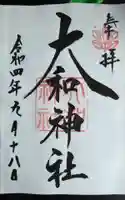 奉拝
大和神社
令和四年九月十八日